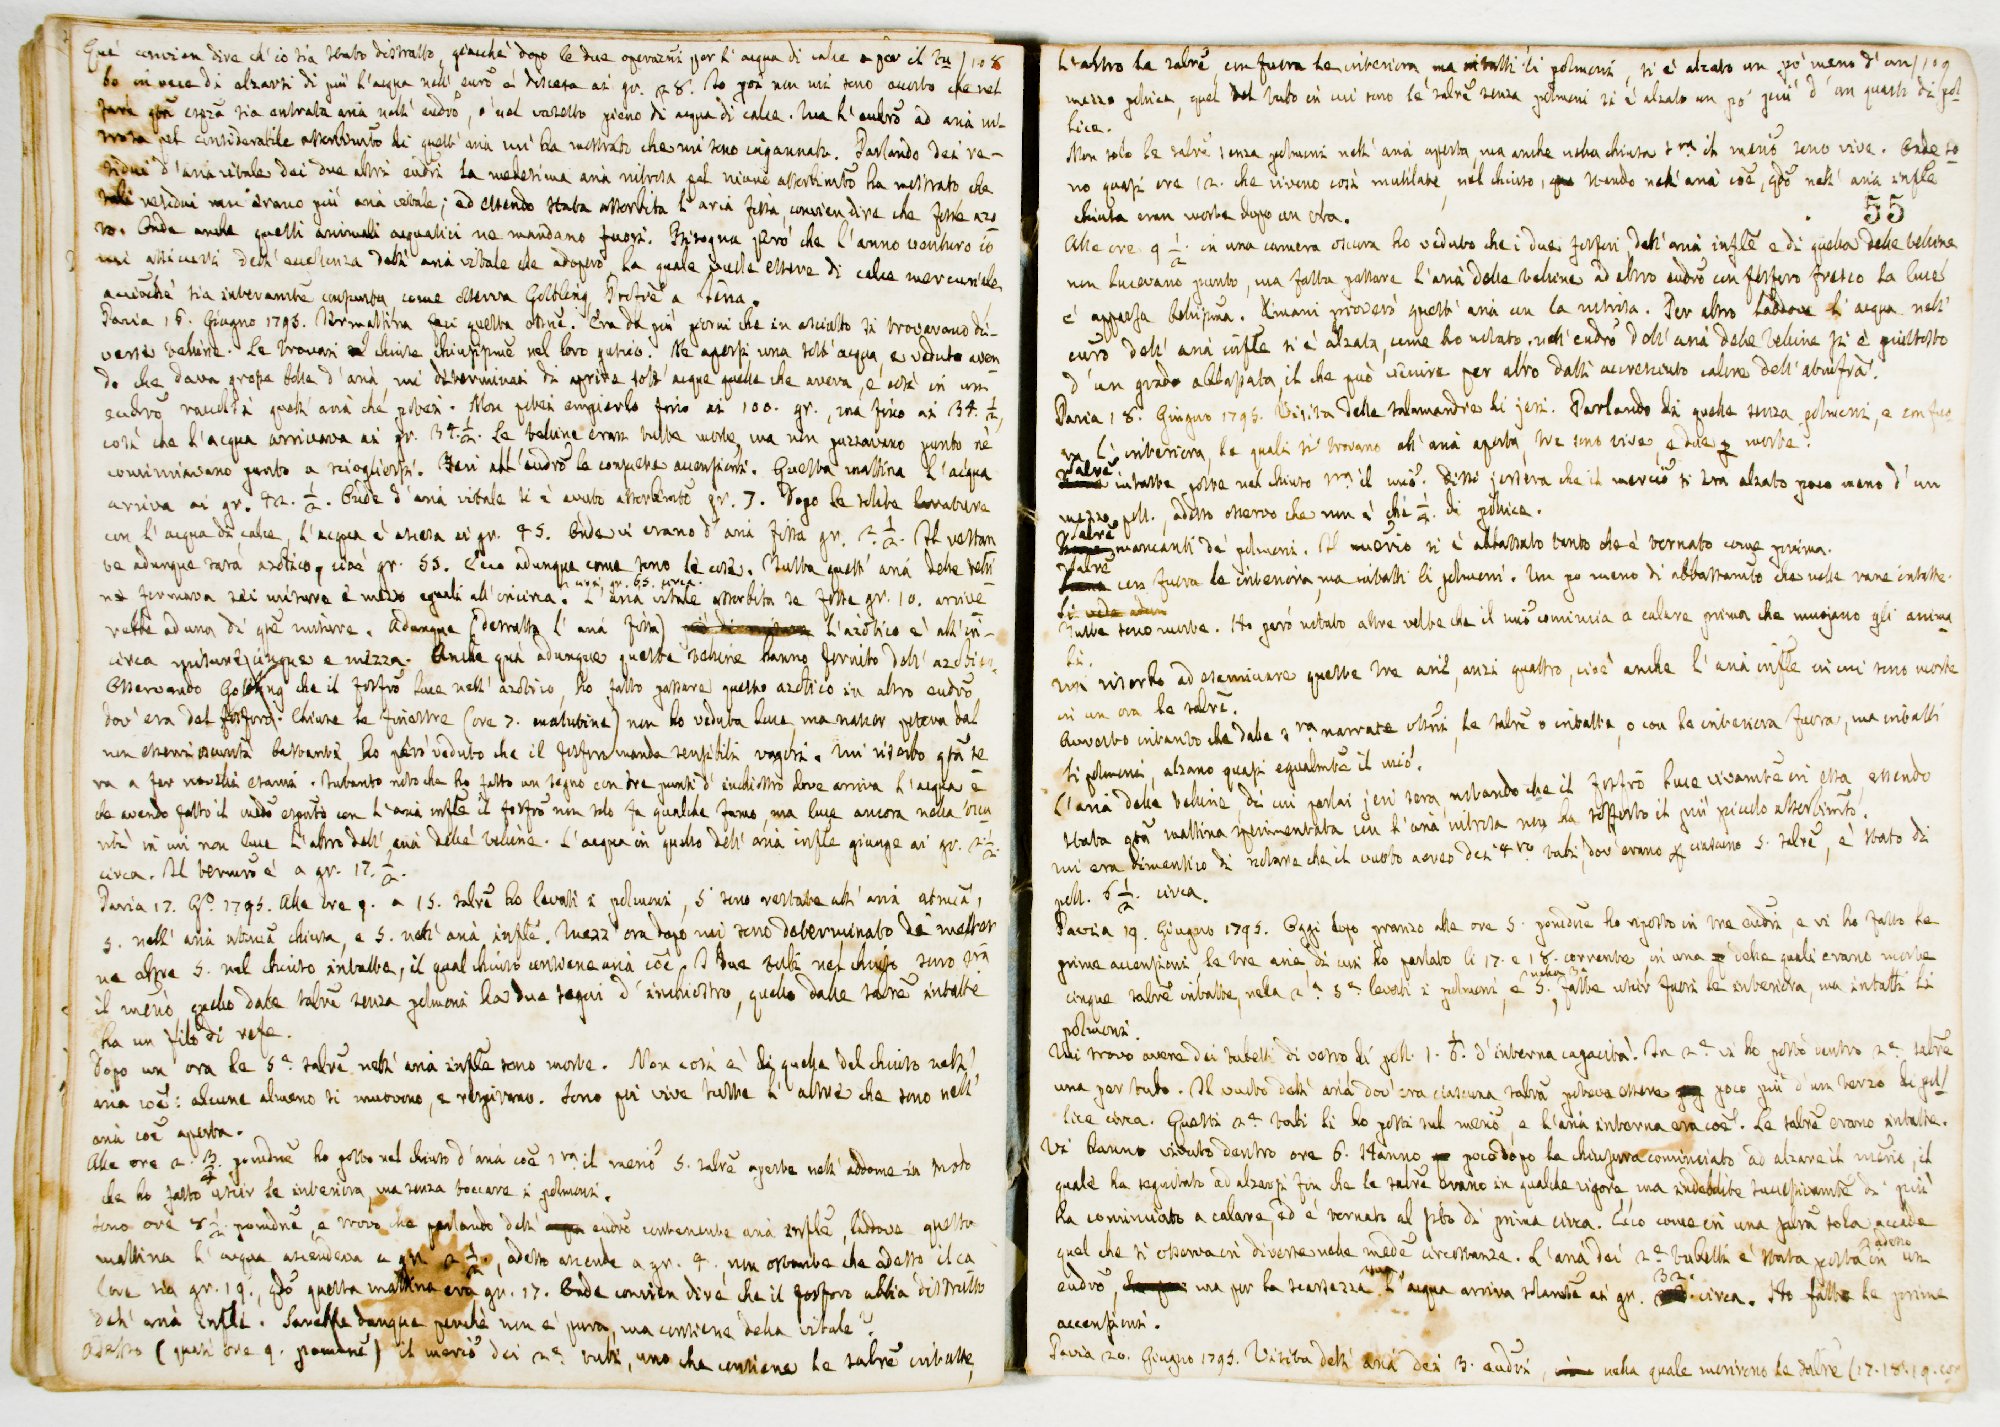 Quì convien dire ch'io sia stato distratto, giacchè dopo le due operazni per l'acqua di calce e per il tu / 108
bo in vece di alzarsi di più l'acqua nell' eudrō è discesa ai gr. 28. Io poi non mi sono accorto che nel
fare qta cosa sia entrata aria nell' eudrō, o nel vasetto pieno di acqua di calce. Ma l'eudrō ad aria ni-
trosa pel considerabile assorbimtō di quell' aria mi ha mostrato che mi sono ingannato. Parlando dei re-
sidui d'aria vitale dei due altri eudri la medesima aria nitrosa pel niuno assorbimtō ha mostrato che
tali residui non erano più aria vitale; ed essendo stata assorbita l'aria fissa, convien dire che fosse azo
to. Onde anche quelli animali acquatici ne mandano fuori. Bisogna però che l'anno venturo io
mi assicuri dell' eccellenza dell' aria vitale che adopero la quale vuole essere di calce mercuriale,
acciocchè sia interamtē consunta, come osserva Gottling Profrē a Jena.
Pavia 16. Giugno 1795. Stamattina feci questa ossne. Era da più giorni che in asciutto si trovavano di-
verse telline. Le trovai chiuse chiusissime nel loro guscio. Ne apersi una sott'acqua, e veduto aven
do che dava grosse bolle d'aria, mi determinai di aprire sott' acqua quelle che aveva, e così in un
eudrō raccolsi quell' aria che potei. Non potei empierlo fino ai 100. gr., ma fino ai 34. 1/2,
così che l'acqua arrivava ai gr. 34. 1/2. Le telline eran tutte morte, ma non puzzavano punto nè
cominciavano punto a sciogliersi. Ieri all' eudrō le consuete accensioni. Questa mattina l'acqua
arriva ai gr. 42. 1/2. Onde d'aria vitale si è avuto assorbimtō gr. 7. Dopo le solite lavature
con l'acqua di calce, l'acqua è ascesa ai gr. 45. Onde vi erano d'aria fissa gr. 2. 1/2. Il restan
te adunque sarà azotico, cioè gr. 55. Ecco adunque come sono le cose. Tutta quest' aria delle telli
ne formava sei misure e mezzo eguali all' incirca. L'aria vitale assorbita se fosse gr. 10. arrive
rebbe ad una di qte misure. Adunque (detratta l'aria fissa) L'azotico è all' in-
circa misure cinque e mezza. Anche quà adunque queste telline hanno fornito dell' azotico.
Osservando Gottling che il fosfrō luce nell' azotico, ho fatto passare questo azotico in altro eudrō
dov'era del fosforo. Chiuse le finestre (ore 7. matutine) non ho veduta luce, ma nascer poteva dal
non esservi oscurità bastante, ho però veduto che il fosforo manda sensibili vapori. Mi riserbo qta se
ra a far novelli esami. Intanto noto che ho fatto un segno con tre punti d'inchiostro dove arriva l'acqua e
che avendo fatto il med.o esperto con l'aria inflē il fosfrō non solo fa qualche fumo, ma luce ancora nella oscu
rità in cui non luce l'altro dell' aria delle telline. L'acqua in quello dell' aria inflē giunge ai gr. 2 1/2.
circa. Il termrō è a gr. 17. 1/2.
Pavia 17. Go. 1795. Alle ore 9. a 15. salrē ho levati i polmoni, 5 sono restate all' aria atmca,
5. nell' aria atmca chiusa, e 5. nell' aria inflē. Mezz'ora dopo mi sono determinato di metter
ne altre 5. nel chiuso intatte, il qual chiuso contiene aria coē. I due tubi nel chiuso sono sra
il mercō, quello dalle salrē senza polmoni ha due segni d'inchiostro, quello dalle salrē intatte
ha un filo di refe.
Dopo un' ora le 5e salrē nell' aria inflē sono morte. Non così è di quelle del chiuso nell'
aria coē: alcune almeno si muovono, e respirano. Sono poi vive tutte l'altre che sono nell'
aria coē aperta.
Alle ore 2. 3/4 pomdne ho posto nel chiuso d'aria coē sra il mercō 5. salrē aperte nell' addome in modo
che ho fatto uscir le interiora, ma senza toccare i polmoni.
Sono ore 8 1/2. pomdne, e trovo che parlando dell' eudrō contenente aria inflē, laddove questa
mattina l'acqua ascendeva a gr. 2 1/2., adesso ascende a gr. 4. non ostante che adesso il ca
lore sia gr. 19., qdo questa mattina era gr. 17. Onde convien dire che il fosforo abbia distrutto
dell' aria inflē. Sarebbe dunque perchè non è pura, ma contiene della vitale?
Adesso (quasi ore 9. pomdne) il mercō dei 2e tubi, uno che contiene le salrē intatte,
L'altro le salrē con fuora le interiora, ma intatti li polmoni, si è alzato un pò meno d'un / 109
mezzo pollice, quel del tubo in cui sono le salrē senza polmoni si è alzato un pò più d'un quarto di pol
lice.
Non solo le salrē senza polmoni nell' aria aperta, ma anche nella chiusa sra il mercō sono vive. Onde so
no quasi ore 12. che vivono così mutilate, nel chiuso, stando nell' aria coē, qdo nell' aria inflē
chiusa eran morte dopo un ora.
55
Alle ore 9 1/2. in una camera oscura ho veduto che i due fosfori dell' aria inflē e di quella delle telline
non lucevano punto, ma fatta passare l'aria delle telline ad altro eudrō con fosforo fresco la luce
è apparsa bellissima. Dimani proverò quest' aria con la nitrosa. Per altro laddove l'acqua nell'
eudrō dell' aria inflē si è alzata, come ho notato, nell' eudrō dell' aria delle telline si è piuttosto
d'un grado abbassata, il che può venire per altro dall' accresciuto calore dell' atmosfra.
Pavia 18. Giugno 1795. Visita delle salamandre di jeri. Parlando di quelle senza polmoni, e con fuo
ra l'interiora, le quali si trovano all' aria aperta, tre sono vive, e due morte.
Salrē intatte poste nel chiuso sra il mrcō. Dissi jersera che il mercō si era alzato poco meno d'un
mezzo poll., adesso osservo che non è che 1/2. di pollice.
Salrē mancanti de' polmoni. Il mercrio si è abbassato tanto che è tornato come prima.
Salrē con fuora le interiora, ma intatti li polmoni. Un po meno di abbassamtō che nelle rane intatte.
Tutte sono morte. Ho però notato altre volte che il mrcō comincia a calare prima che muojano gli anima
li.
Mi riserbo ad esaminare queste tre arie, anzi quattro, cioè anche l'aria inflē in cui sono morte
in un ora le salrē.
Avverto intanto che dalle sra narrate ossni, le salrē o intatte, o con le interiora fuora, ma intatti
li polmoni, alzano quasi egualmtē il mrcō.
L'aria delle telline, di cui parlai jeri sera notando che il fosfrō luce vivamtē in essa, essendo
stata qta mattina sperimentata con l'aria nitrosa non ha sofferto il più piccolo assorbimtō.
Mi era dimentico di notare che il vuoto aereo dei 4ro tubi, dov'erano ciascuno 5. salrē, è stato di
poll. 6 1/2. circa.
Pavia 19. Giugno 1795. Oggi dopo pranzo alle ore 5. pomdne ho riposto in tre eudri, e vi ho fatto le
prime accensioni le tre arie, di cui ho parlato li 17. e 18. corrente, in una delle quali erano morte
cinque salrē intatte, nella 2a. 5e levati i polmoni, e nella 3a. 5. fatte uscir fuori le interiora, ma intatti li
polmoni.
Mi trovo avere dei tubetti di vetro di poll. 1. 1/6. d'interna capacità. In 2e vi ho posto dentro 2e salrē
una per tubo. Il vuoto dell' aria dov'era ciascuna salrā poteva essere poco più d'un terzo di pol
lice circa. Questi 2e tubi li ho posti sul mercō, e l'aria interna era coē. Le salrē erano intatte.
Vi hanno vivuto dentro ore 6. Hanno poco dopo la chiusura cominciato ad alzare il mercrio, il
quale ha seguitato ad alzarsi fin che le salrē erano in qualche vigore ma indebolite successivamtē di più
ha cominciato a calare, ed è tornato al psto di prima circa. Ecco come in una salrā sola accade
quel che si osserva in diverse nelle medē circostanze. L'aria dei 2e tubetti è stata posta adesso in un
eudrō, ma per la scarsezza l'acqua arriva solamtē ai gr. 32. circa. Ho fatto le prime
accensioni.
Pavia 20. Giugno 1795. Visita dell' aria dei 3. eudri, nella quale morirono le salrē (17. 18. 19. cor